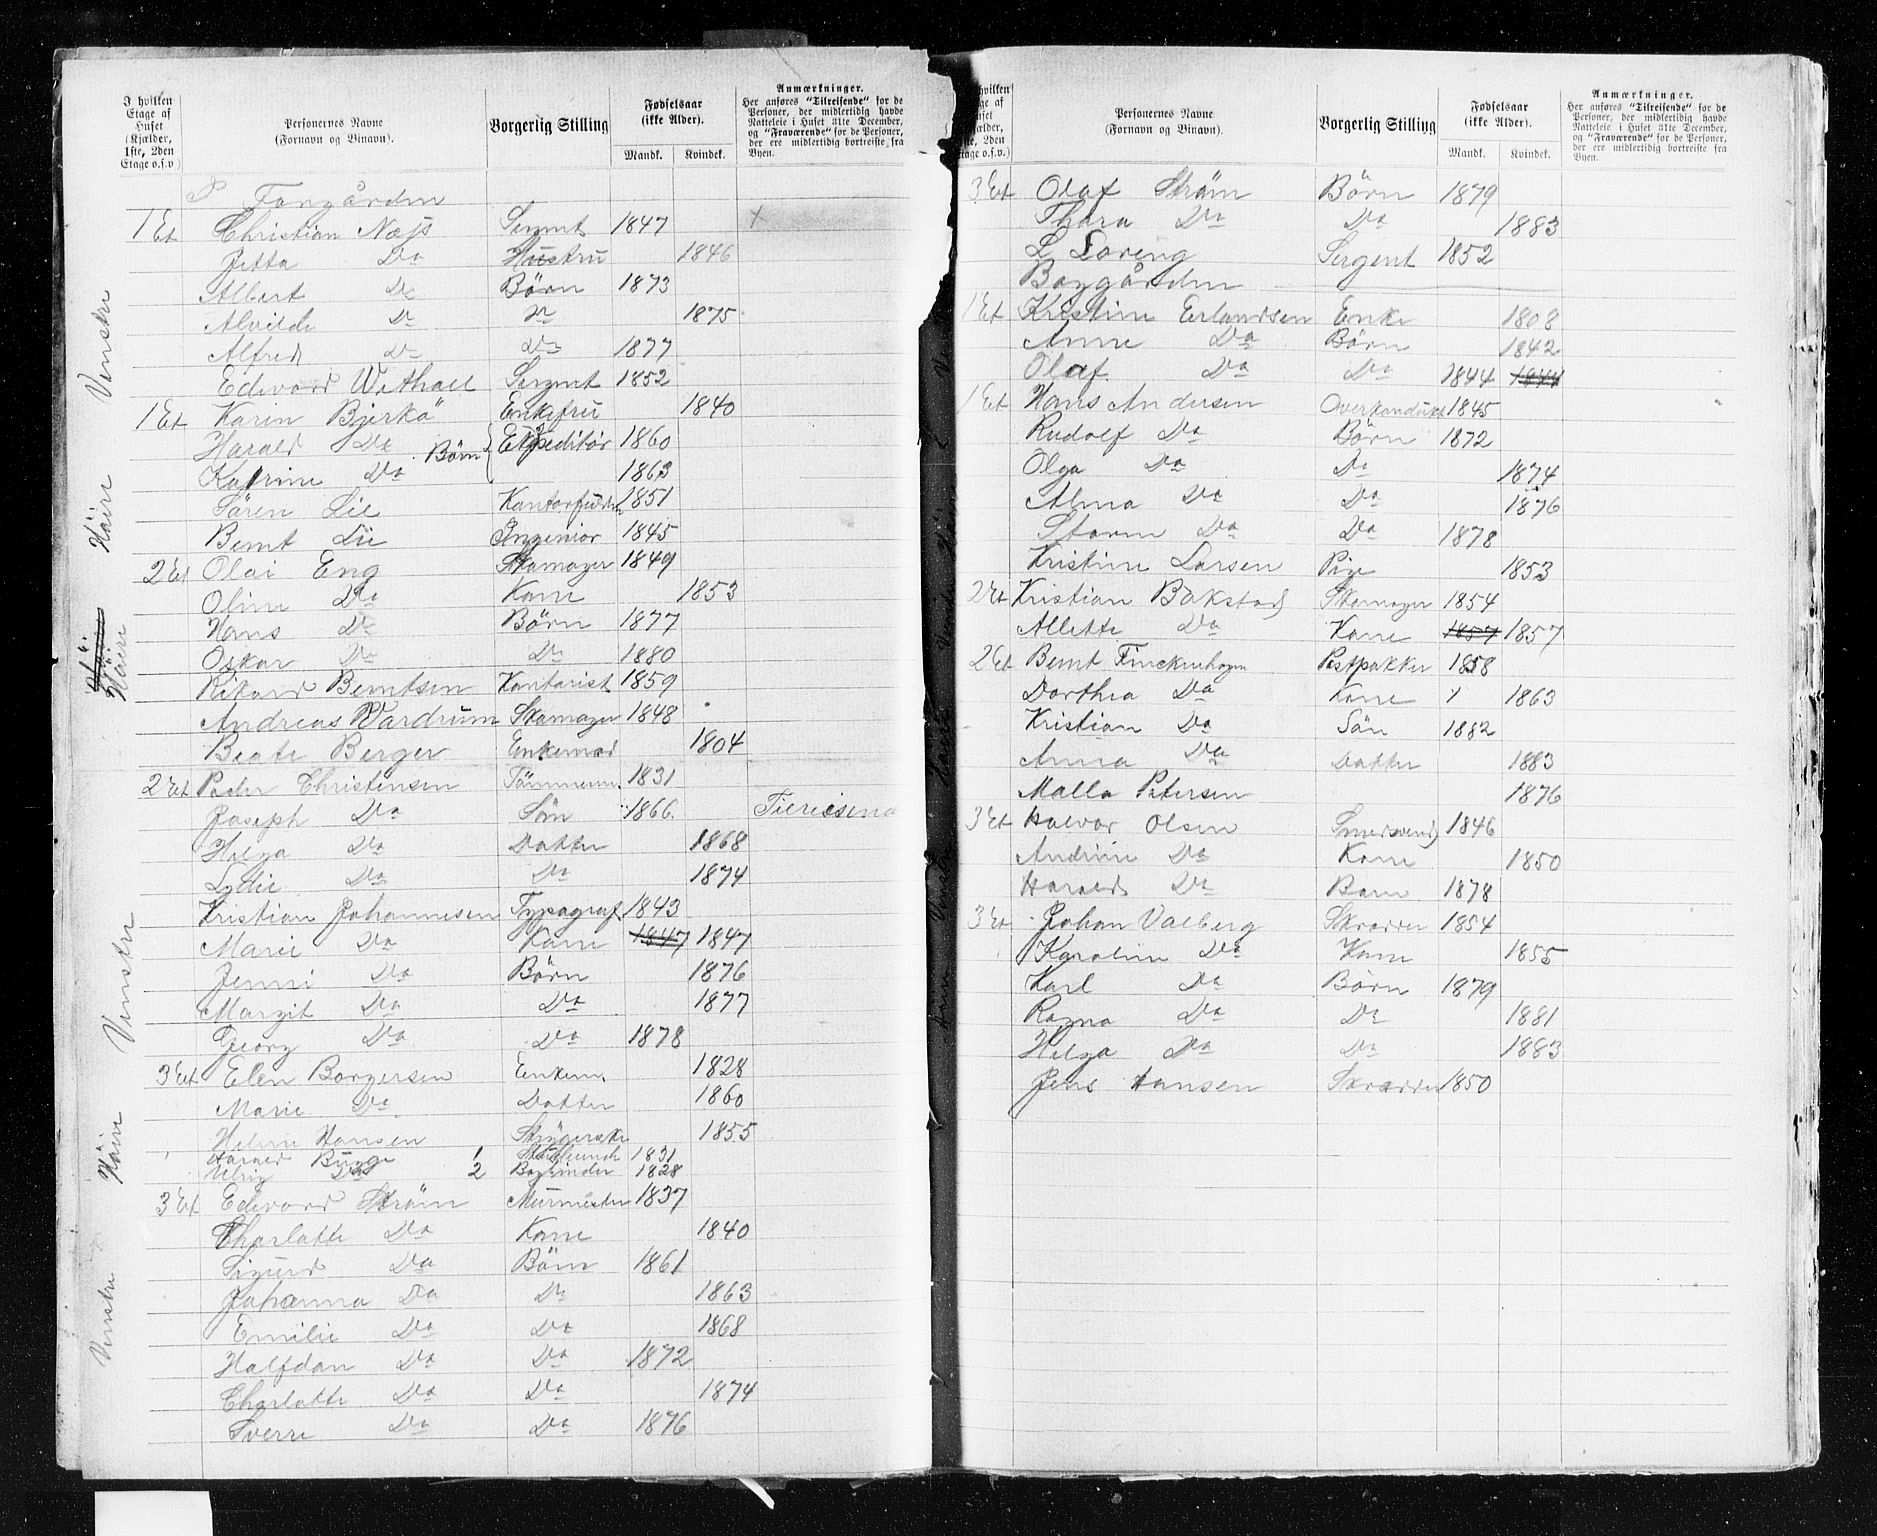 I hvilken Etage af Huset (Kjælder, 1ste, 2den Etage o.s.v.)
Personernes Navne (Fornavn og Binavn).
Borgerlig Stilling
Fødselsaar (ikke Alder).
Mandk. Kvindek.
Anmærkninger.
Her anføres "Tilreisende" for de Personer, der midlertidig havde Natteleie i Huset 31te December, og "Fraværende" for de Personer, der ere midlertidig bortreiste fra Byen.
Forgården
1 Et Christian Næss Sergnt 1847 x
Jetta Do Hustru 1846
Albert Do Börn 1873
Alvilde Do Do 1875
Alfred Do Do 1877
Edvard Withall Sergnt 1852
1 Et Karin Bjerkö Enkefru 1840
Harald Do Börn Expeditör 1860
Katrine Do 1863
Sören Lie 1851
Bernt Lie Ingeniör 1845
2 Et Olai Eng Skomager 1849
Oline Do Kone 1853
Hans Do Börn 1877
Oskar Do Do 1880
Rikard Berntsen Kontorist 1859
Andreas Wardrum Skomager 1848
Beate Berger 1804
2 Et Peder Christensen Tömmerm. 1831
Joseph Do Sön 1866
Helga Do Datter 1868
Lydie Do Do 1874
Kristian Johannesen Typograf 1843
Marie Do Kone 1847 1847
Jenni Do Börn 1876
Margit Do Do 1877
Georg Do Do 1878
3 Et Elen Borgersen Enkem. 1828
Marie Do Datter 1860
Heline Hansen Strÿgerske 1855
Bugge 1 1831
Do 2 Bogbinder 1828
3 Et Edvard Ström Murmester 1837
Charlotte Do Kone 1840
Sigurd Do Börn 1861
Johanna Do Do 1863
Emilie Do Do 1868
Halfdan Do Do 1872
Charlotte Do Do 1874
Sverre Do Do 1876
Venstre
Höire
Höire
Venstre
Höire
Venstre
I hvilken Etage af Huset (Kjælder, 1ste, 2den Etage o.s.v.)
Personernes Navne (Fornavn og Binavn).
Borgerlig Stilling
Fødselsaar (ikke Alder).
Mandk. Kvindek.
Anmærkninger.
Her anføres "Tilreisende" for de Personer, der midlertidig havde Natteleie i Huset 31te December, og "Fraværende" for de Personer, der ere midlertidig bortreiste fra Byen.
3 Et Olaf Ström Börn 1879
Thora Do Do 1883
L Loreng Sergent 1852
Baggården
1 Et Kristine Erlandsen Enke 1808
Anne Do Börn 1842
Olaf Do Do 1844 1844
1 Et Hans Andersen 1845
Rudolf Do Börn 1872
Olga Do Do 1874
Alma Do Do 1876
Storm Do Do 1878
Kristine Larsen Pige 1853
2 Et Kristian Bakstad Skomager 1854
Allette Do Kone 1857 1857
2 Et Bernt Finckenhagen Postpakker 1858
Dorthea Do Kone 1863
Kristian Do Sön 1882
Anna Do Datter 1883
Malla Petersen 1876
3 Et Halvor Olsen Smedsvend 1846
Andrine Do Kone 1850
Harald Do Barn 1878
3 Et Johan Valberg Skrædder 1854
Karoline Do Kone 1855
Karl Do Börn 1879
Ragna Do Do 1881
Helga Do Do 1883
Jens Hansen Skrædder 1850